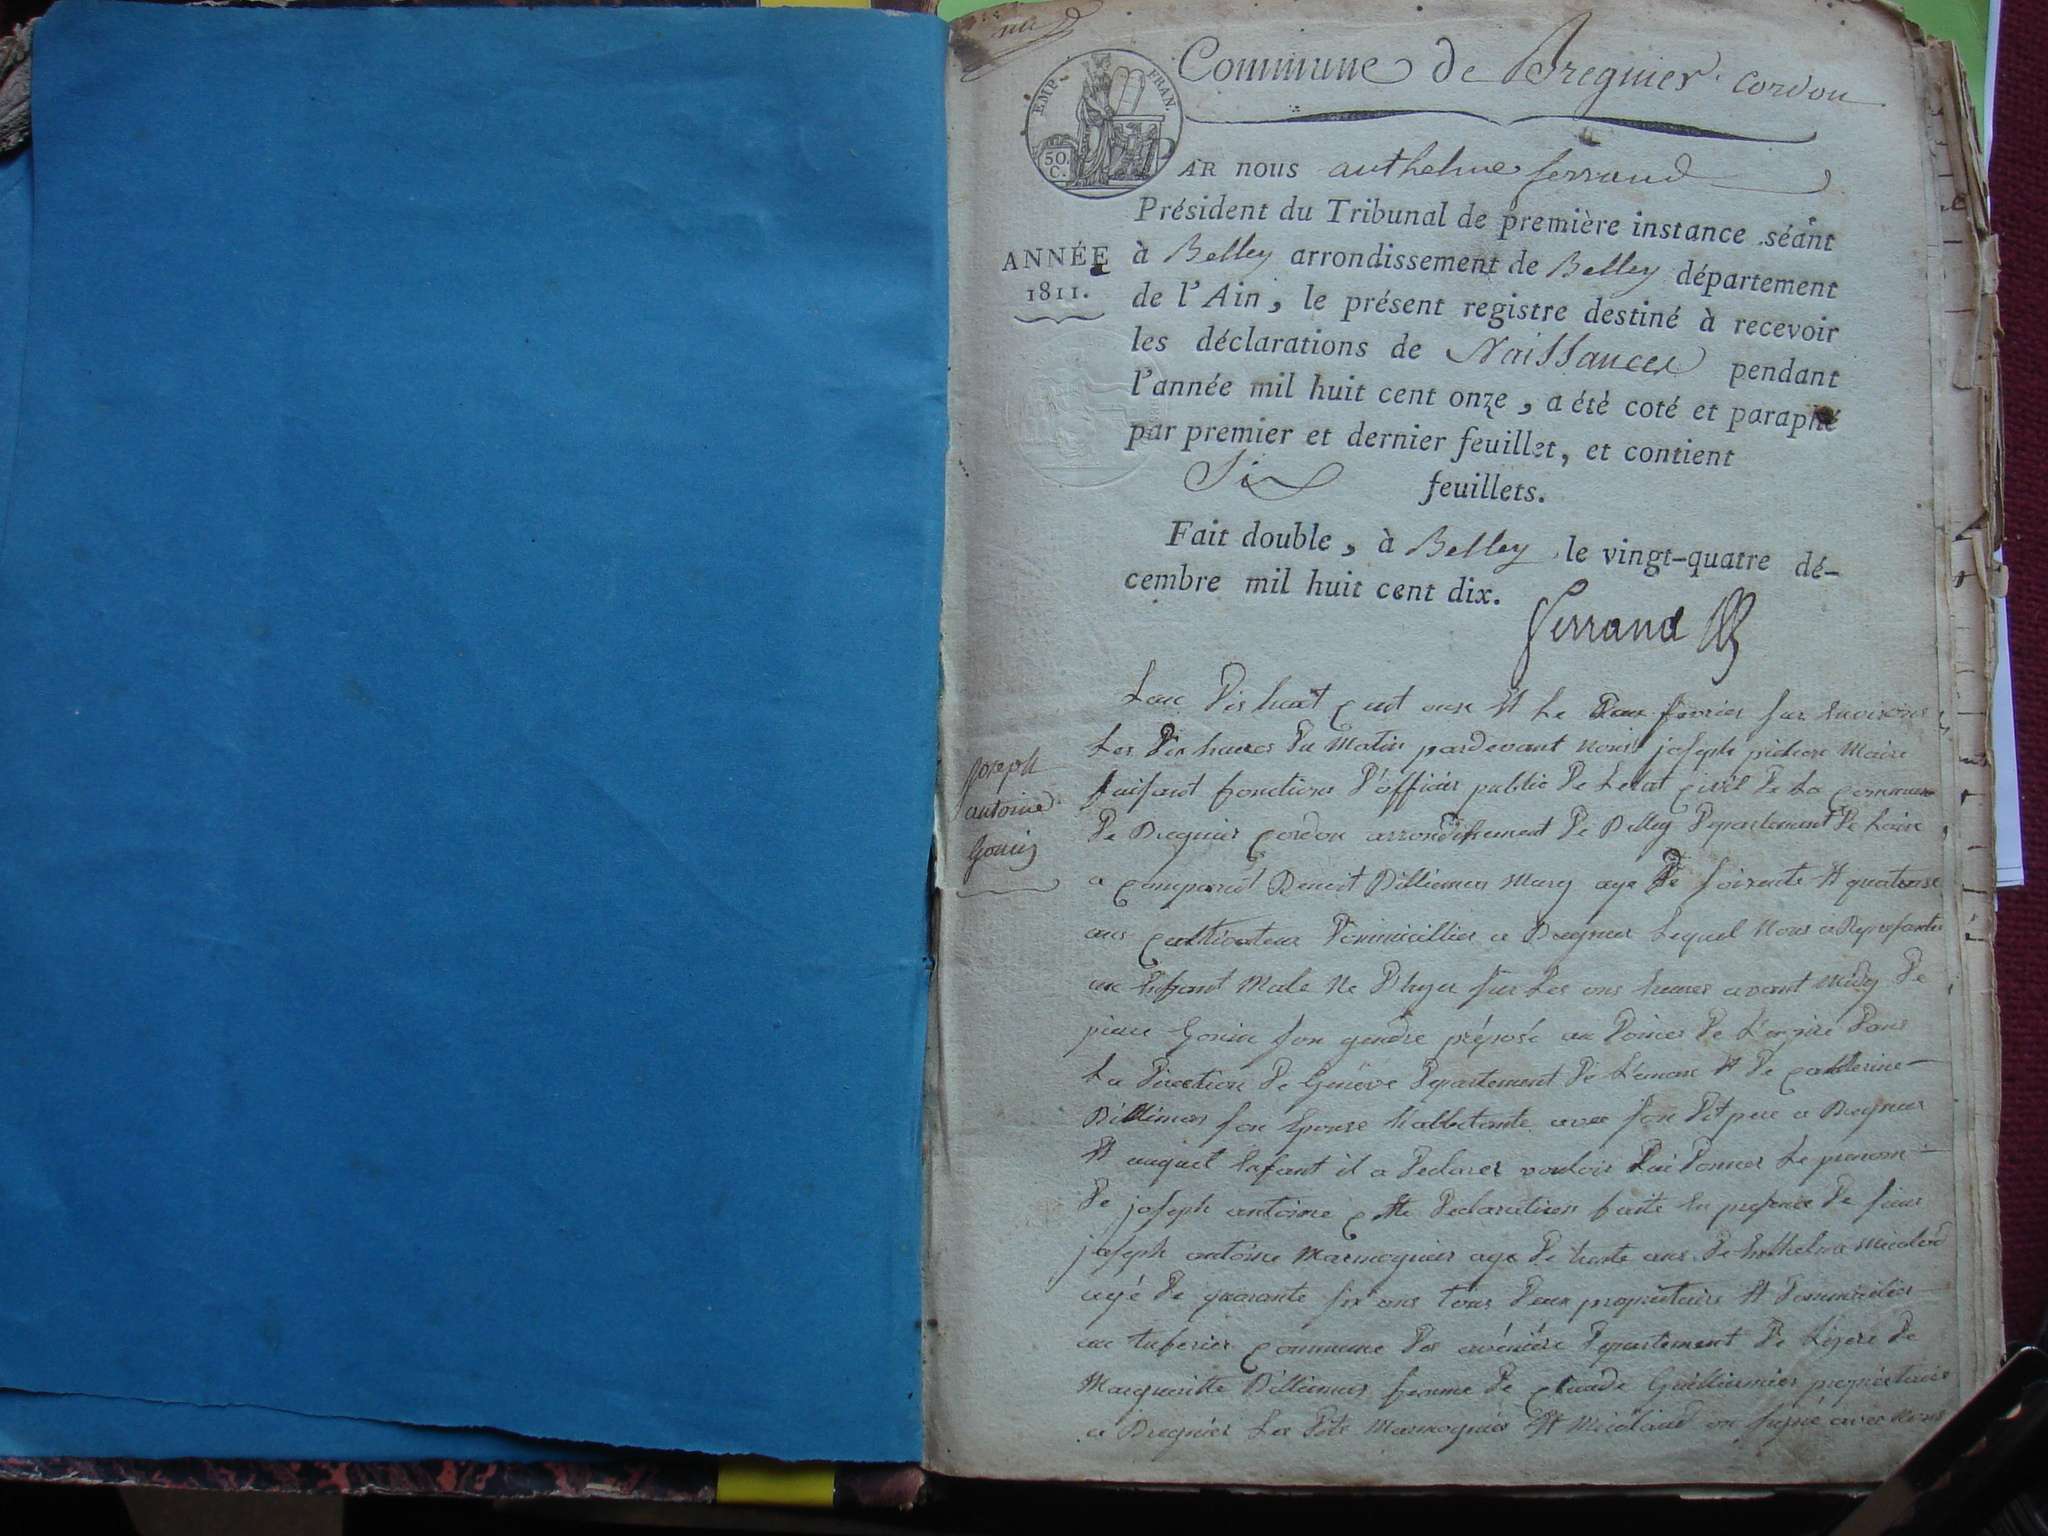 Commune de Bregnier Cordon
EMP. FRAN.
50. C.
AR nous anthelme ferrand
Président du Tribunal de première instance séant
ANNÉE
1811.
à Belley arrondissement de Belley département
de l'Ain, le présent registre destiné à recevoir
les déclarations de Naissances pendant
l'année mil huit cent onze, a été coté et paraphé
par premier et dernier feuillet, et contient
Six feuillets.
Fait double, à Belley le vingt-quatre dé-
cembre mil huit cent dix.
ferrand
joseph
antoine
Gonin
Lan Dis huit Cent onze Et Le Deux fevrier sur Environs
Les Dix heures Du Matin pardevant nous joseph Maire
faisant fonctions D'officier public De Letat Civil De La Commune
De Bregnier Cordon arrondissement De Belley Departement De Lain
a Comparut Benoit Billiemas Marq age De soixente Et quatorse
ans Cultivateur Dommicillier a Bregnier Lequel Nous a Represanté
un Enfant Male Ne Dhyer sur Les ons heures avant Midy De
piere Gonin son gendre préposé au Doines De L'enpire Dans
La Direction De Genève Departement De Leman Et De Catterine
Billiemas son Epouse habbitante avec son Dit pere a Bregnier
Et auquel Enfant il a Declarer vouloir Lui Donner Le prenom
De joseph antoine Cette Declaration faite En presence De sieur
joseph antoine Marmognier age De trante ans De Enthelme Micoland
agé De quarante six ans tous Deux proprietaire Et Dommicilies
au Commune Des avénière Departement De Lizere De
Margueritte Billiemas femme De Claude Guilliermier proprietaire
a Bregnier Les Dits Marmognier Et Micoland on signé avec Nous